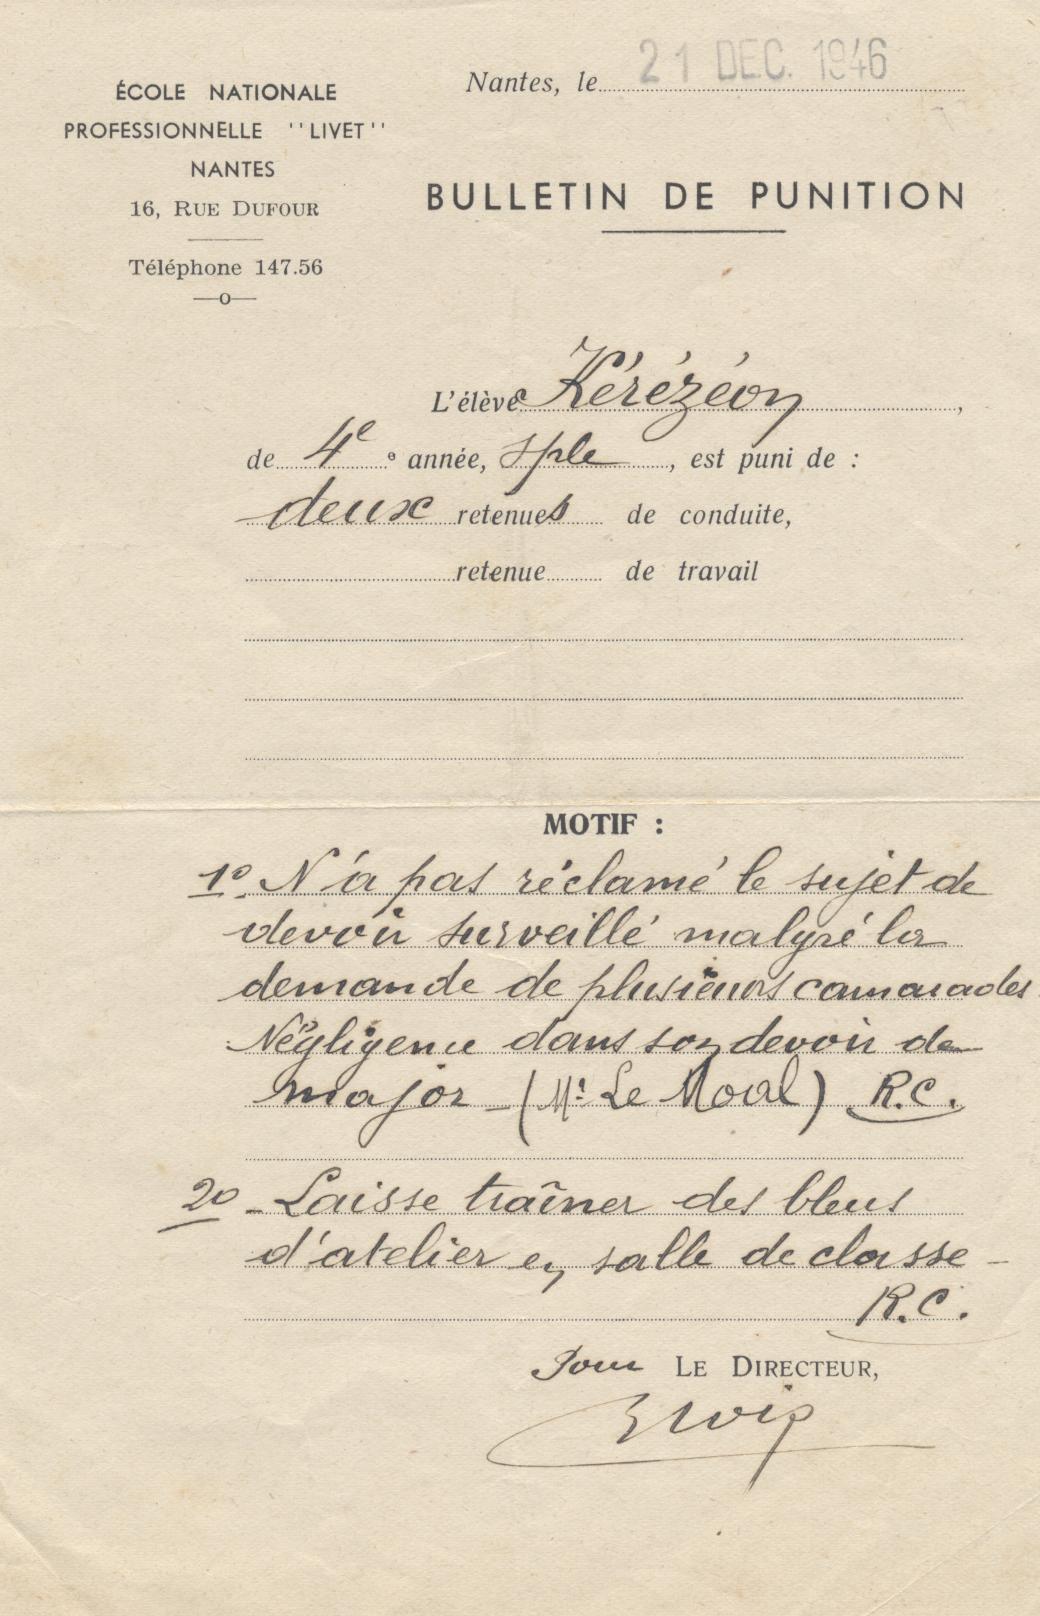 ÉCOLE NATIONALE
PROFESSIONNELLE ''LIVET''
NANTES
16, RUE DUFOUR
Téléphone 147.56
Nantes, le 21 DEC. 1946
BULLETIN DE PUNITION
L'élève Kérézéon,
de 4e e année, sple, est puni de :
deux retenues de conduite,
retenue de travail
MOTIF :
1º. N'a pas réclamé le sujet de
devoir surveillé malgré la
demande de plusieurs camarades.
Négligence dans son devoir de
major - (Mr Le Moal) R.C.
2º - Laisse traîner des bleus
d'atelier en salle de classe -
R.C.
Pour LE DIRECTEUR,